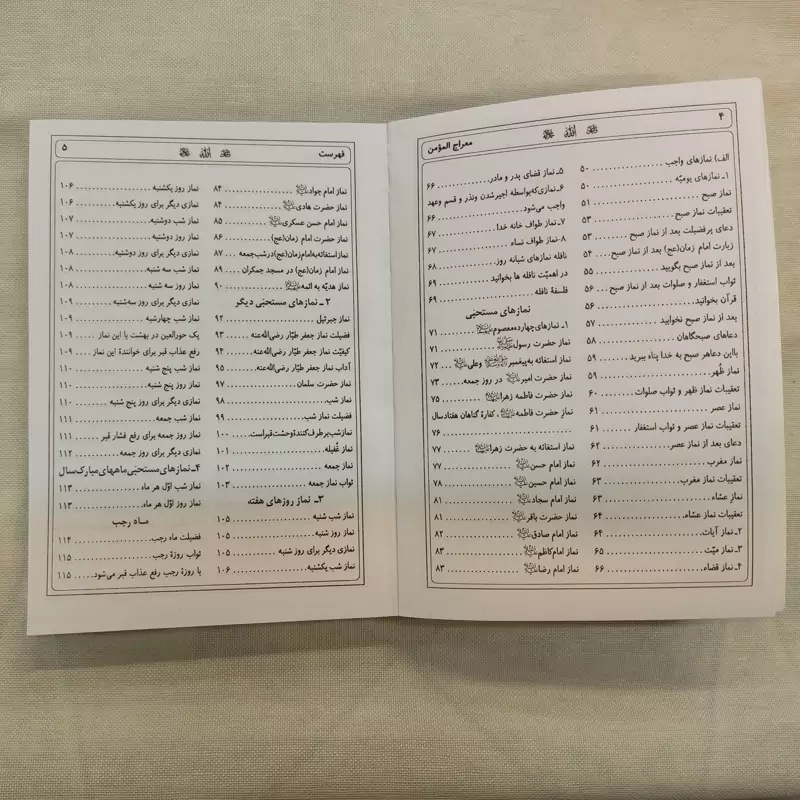 ۴
الله
معراج المؤمن
الف) نمازهای واجب ۵۰
۱ـ نمازهای یومیّه ۵۰
نماز صبح ۵۱
تعقیبات نماز صبح ۵۳
دعای پرفضیلت بعد از نماز صبح ۵۳
زیارت امام زمان(عج) بعد از نماز صبح ۵۴
بعد از نماز صبح بگویید ۵۵
ثواب استغفار و صلوات بعد از نماز صبح ۵۶
قرآن بخوانید ۵۶
بعد از نماز صبح نخوابید ۵۷
دعاهای صبحگاهان ۵۸
بااین دعاهر صبح به خدا پناه ببرید ۵۹
نماز ظُهر ۵۹
تعقیبات نماز ظهر و ثواب صلوات ۶۰
نماز عصر ۶۱
تعقیبات نماز عصر و ثواب استغفار ۶۱
دعای بعد از نماز عصر ۶۲
نماز مغرب ۶۲
تعقیبات نماز مغرب ۶۳
نماز عشاء ۶۳
تعقیبات نماز عشاء ۶۴
۲ـ نماز آیات ۶۴
۳ـ نماز میّت ۶۵
۴ـ نماز قضاء ۶۶
۵ـ نماز قضای پدر و مادر ۶۶
۶ـ نمازی‌که‌بواسطه اجیرشدن ونذر و قسم وعهد
واجب می‌شود ۶۶
۷ـ نماز طواف خانه خدا ۶۷
۸ـ نماز طواف نساء ۶۷
نافله نمازهای شبانه روز ۶۸
در اهمیّت نافله ها بخوانید ۶۹
فلسفهٔ نافله ۶۹
نمازهای مستحبّی
۱ـ نمازهای‌چهارده‌معصوم ۷۱
نماز حضرت رسول ۷۱
نماز استغاثه به‌پیغمبر وعلی ۷۲
نماز حضرت امیر در روز جمعه ۷۳
نماز حضرت فاطمه زهرا ۷۵
نماز حضرت فاطمه، کفارهٔ گناهان هفتادسال
۷۶
نماز استغاثه به حضرت زهرا ۷۷
نماز امام حسن ۷۷
نماز امام حسین ۷۸
نماز امام سجاد ۸۱
نماز حضرت باقر ۸۱
نماز امام صادق ۸۲
نماز امام‌کاظم ۸۳
نماز امام رضا ۸۳
فهرست
الله
۵
نماز امام جواد ۸۴
نماز حضرت هادی ۸۴
نماز امام حسن عسکری ۸۵
نماز حضرت امام زمان(عج) ۸۶
نمازاستغاثه‌به‌امام‌زمان(عج)درشب‌جمعه ۸۷
نماز امام زمان(عج) در مسجد جمکران ۸۹
نماز هدیّه به ائمه ۹۰
۲ ـ نمازهای مستحبّی دیگر
نماز جبرئیل ۹۲
فضیلت نماز جعفر طیّار رضی‌الله‌عنه ۹۳
کیفیّت نماز جعفر طیّار رضی‌الله‌عنه ۹۴
آداب نماز جعفر طیّار رضی‌الله‌عنه ۹۵
نماز حضرت سلمان ۹۷
نماز شب ۹۸
فضیلت نماز شب ۹۹
نمازشب‌برطرف‌کنندهٔ‌وحشت‌قبراست ۱۰۰
نماز غُفیله ۱۰۱
نماز جمعه ۱۰۲
ثواب نماز جمعه ۱۰۳
۳ـ نماز روزهای هفته
نماز شب شنبه ۱۰۵
نماز روز شنبه ۱۰۵
نمازی دیگر برای روز شنبه ۱۰۵
نماز شب یکشنبه ۱۰۶
نماز روز یکشنبه ۱۰۶
نمازی دیگر برای روز یکشنبه ۱۰۶
نماز شب دوشنبه ۱۰۷
نماز روز دوشنبه ۱۰۷
نمازی دیگر برای روز دوشنبه ۱۰۸
نماز شب سه شنبه ۱۰۸
نماز روز سه شنبه ۱۰۸
نمازی دیگر برای روز سه‌شنبه ۱۰۹
نماز شب چهارشبه ۱۰۹
یک حورالعین در بهشت با این نماز ۱۰۹
رفع عذاب قبر برای خوانندهٔ این نماز ۱۰۹
نماز شب پنج شنبه ۱۱۰
نماز روز پنج شنبه ۱۱۰
نمازی دیگر برای روز پنج شنبه ۱۱۰
نماز شب جمعه ۱۱۱
نماز روز جمعه برای رفع فشار قبر ۱۱۱
نمازی دیگر برای روز جمعه ۱۱۲
۴ـ نمازهای مستحبّی ماههای مبارک سال
نماز شب اوّل هر ماه ۱۱۳
نماز روز اوّل هر ماه ۱۱۳
مـاه رجب
فضیلت ماه رجب ۱۱۴
ثواب روزهٔ رجب ۱۱۵
با روزهٔ رجب رفع عذاب قبر می‌شود ۱۱۵